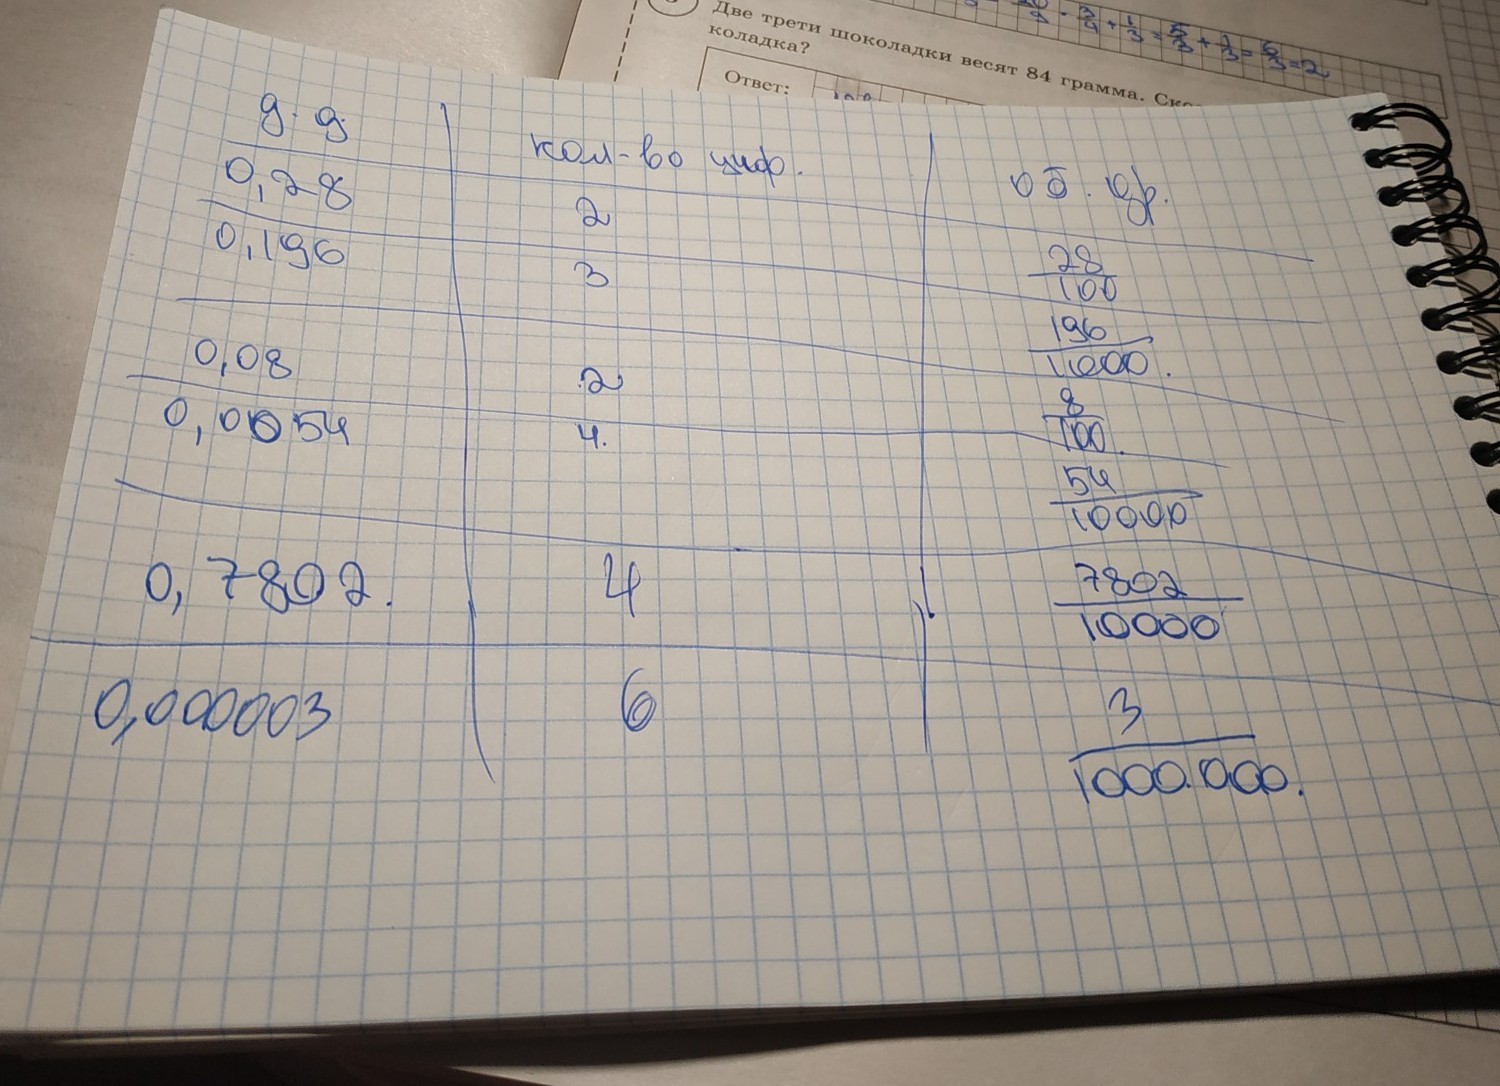 Две трети шоколадки весят 84 грамма. Ско
коладка?
Ответ:
д.д. кол-во циф. об. др.
0,28 2 28/100
0,196 3 196/1000.
0,08 2 8/100.
0,0054 4. 54/10000
0,7802. 4 7802/10000
0,000003 6 3/1000.000.